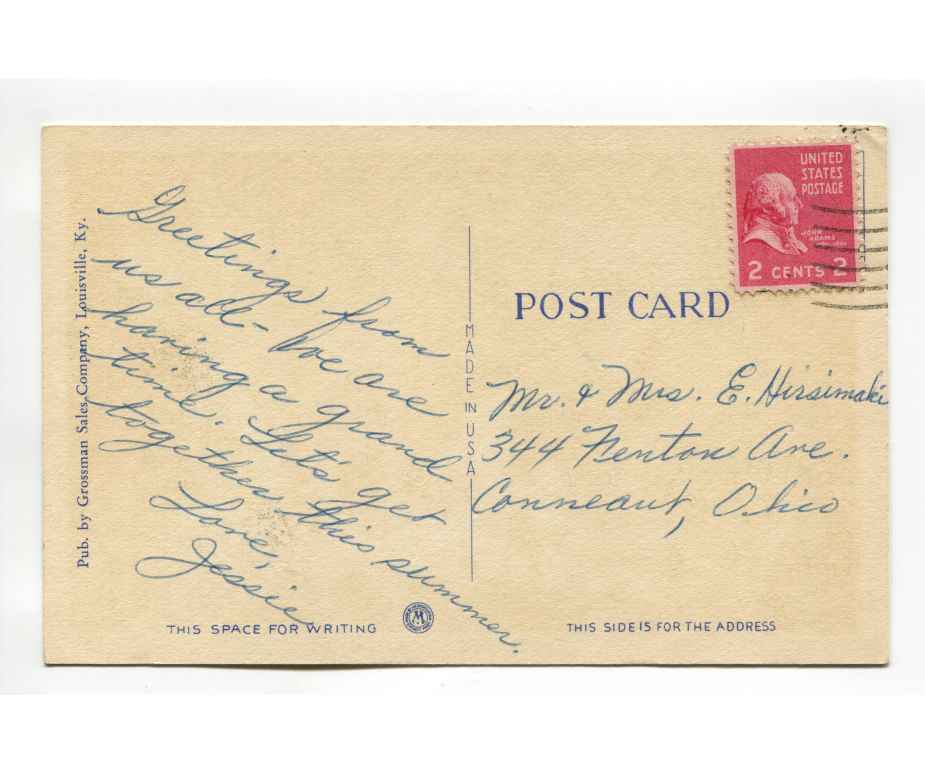 Pub. by Grossman Sales Company, Louisville, Ky.
Greetings from
us all – We are
having a grand
time. Let's get
together this summer.
Love,
Jessie
THIS SPACE FOR WRITING
M
MADE IN USA
UNITED
STATES
POSTAGE
JOHN
ADAMS
2 CENTS 2
POST CARD
Mr. & Mrs. E. Hirsimaki
344 Fenton Ave.
Conneaut, Ohio
THIS SIDE IS FOR THE ADDRESS